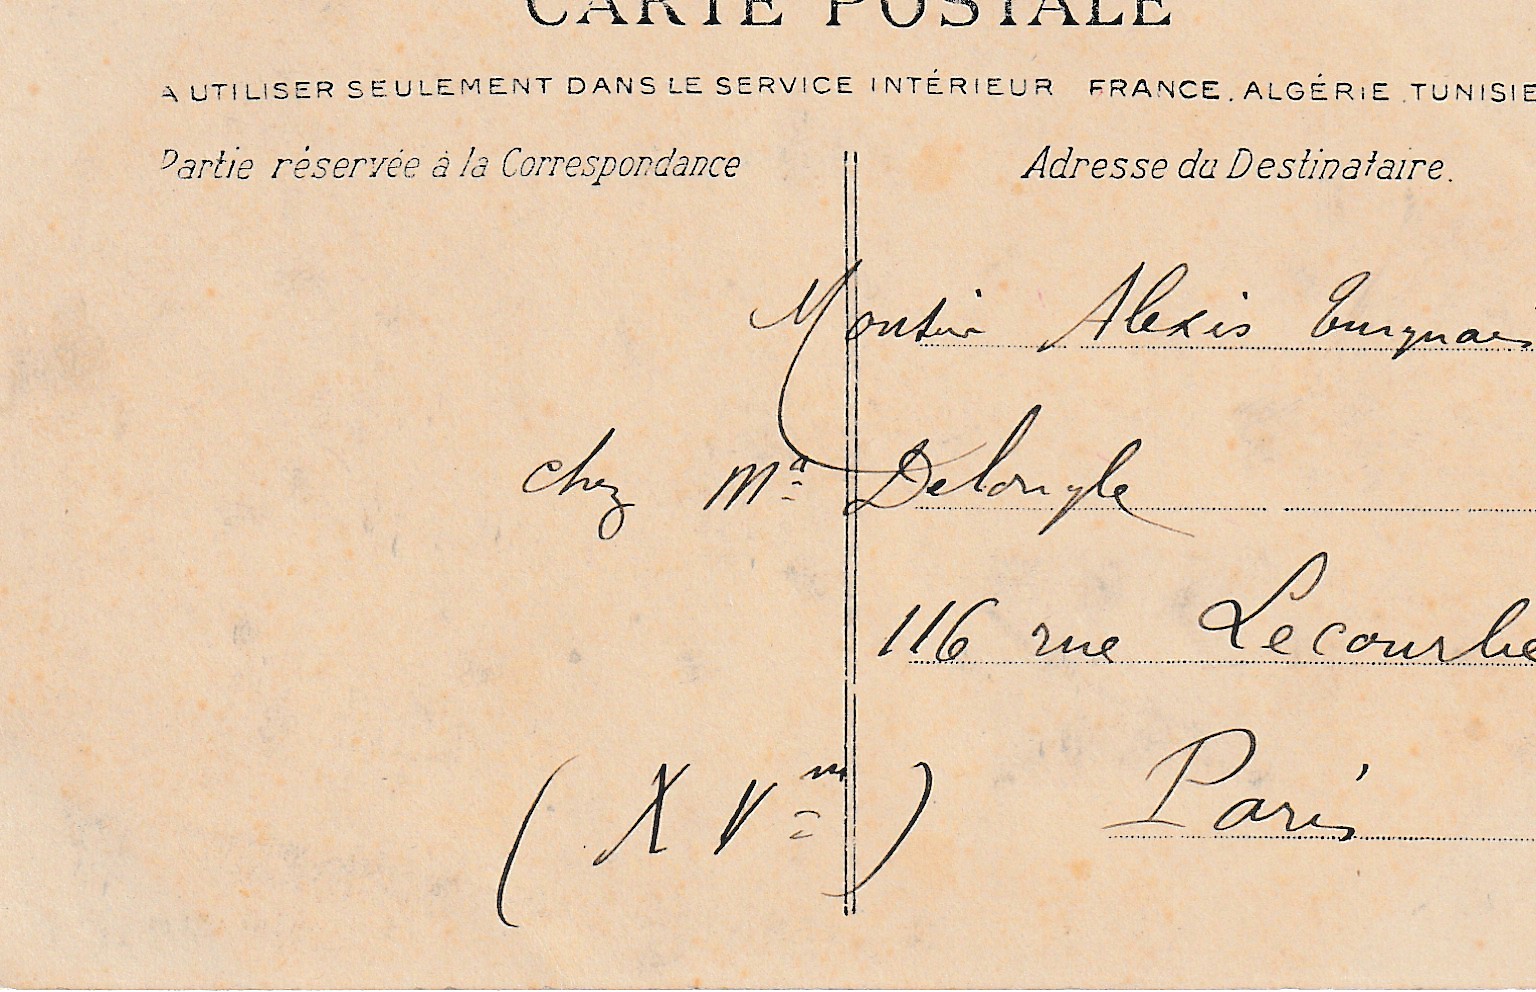 CARTE POSTALE
A UTILISER SEULEMENT DANS LE SERVICE INTÉRIEUR FRANCE. ALGÉRIE. TUNISIE
Partie réservée à la Correspondance
Adresse du Destinataire.
Alexis
chez Delongle
116 rue Lecourbe
(XVm) Paris